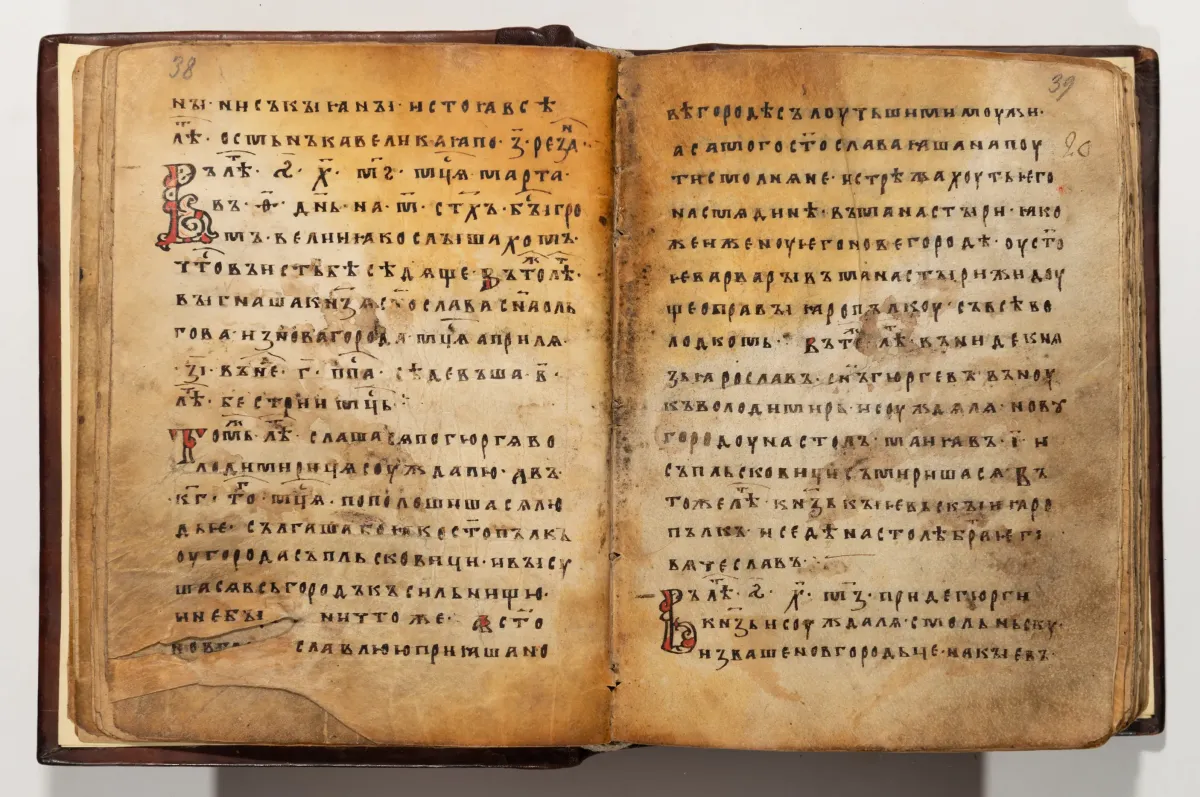 38
нꙑ · ни съ кꙑꙗнꙑ · и стоꙗ всѣ
лѣ҃ · осмьнъка великаꙗ по · з҃ · рѣза
Въ лѣ҃ · ҂ѕ҃ · х҃ · м҃ѕ · мц҃ѧ марта ·
въ · ѳ҃ · дн҃ь · на · м҃ · ст҃хъ · бꙑ гро
мъ · велии ꙗко слꙑшахомъ ·
въ истьбѣ сѣдѧще · Въ то лѣ҃ ·
вꙑгнаша кнѧ҃зѧ ст҃ослава сн҃а оль
гова · из новагорода · мц҃ѧ априлѧ ·
з҃і · въ не҃ · г҃ · п па҃ · сѣдевъша · в҃ ·
лѣ҃ · бе стрии мц҃ь ·
Томь · лѣ҃ · слашасѧ по гюргѧ во
лодимирицѧ суждалю · Двъ ·
к҃г · того · мц҃ѧ · пополошишасѧ лю
дье · сългаша бо ꙗко ст҃опълкъ
оу города съ пльсковици · и вꙑсу
шасѧ вьсь городъ къ сильнищю ·
и не бꙑ ничто же · А ст҃о
славлюю приꙗша но
39
20
вѣгородѣ съ лоутьшими моужи ·
а самого ст҃ослава ꙗша на поу
ти смолнѧне · и стрѣжахуть ѥго
на смѧдинѣ · въ манастꙑри · ꙗко
же и женоу ѥго новегородѣ · оу ст҃о
ѥ варварꙑ въ манастꙑри жидоу
ще оправꙑ ꙗропълкоу · съ всѣво
лодкомь · Въ то҃ лѣ҃ · въниде кнѧ
зь ꙗрославъ · сн҃ъ гюргевъ · въноу
къ володимирь · и соуждалѧ · нову
городоу на столъ · маиꙗ въ · і҃ · и
съ пльсковици съмиришасѧ · Въ
то же лѣ҃ · кнѧ҃зь кꙑѥвьскꙑи ꙗро
пълкъ · и седѣ на столѣ бра ѥго
вѧцеславъ ·
Въ лѣ҃ · ҂ѕ҃ · х҃ · м҃з · приде гюрги
кнѧ҃зь и суждалѧ · смольньску ·
и зваше новгородьце · на кꙑѥвъ ·